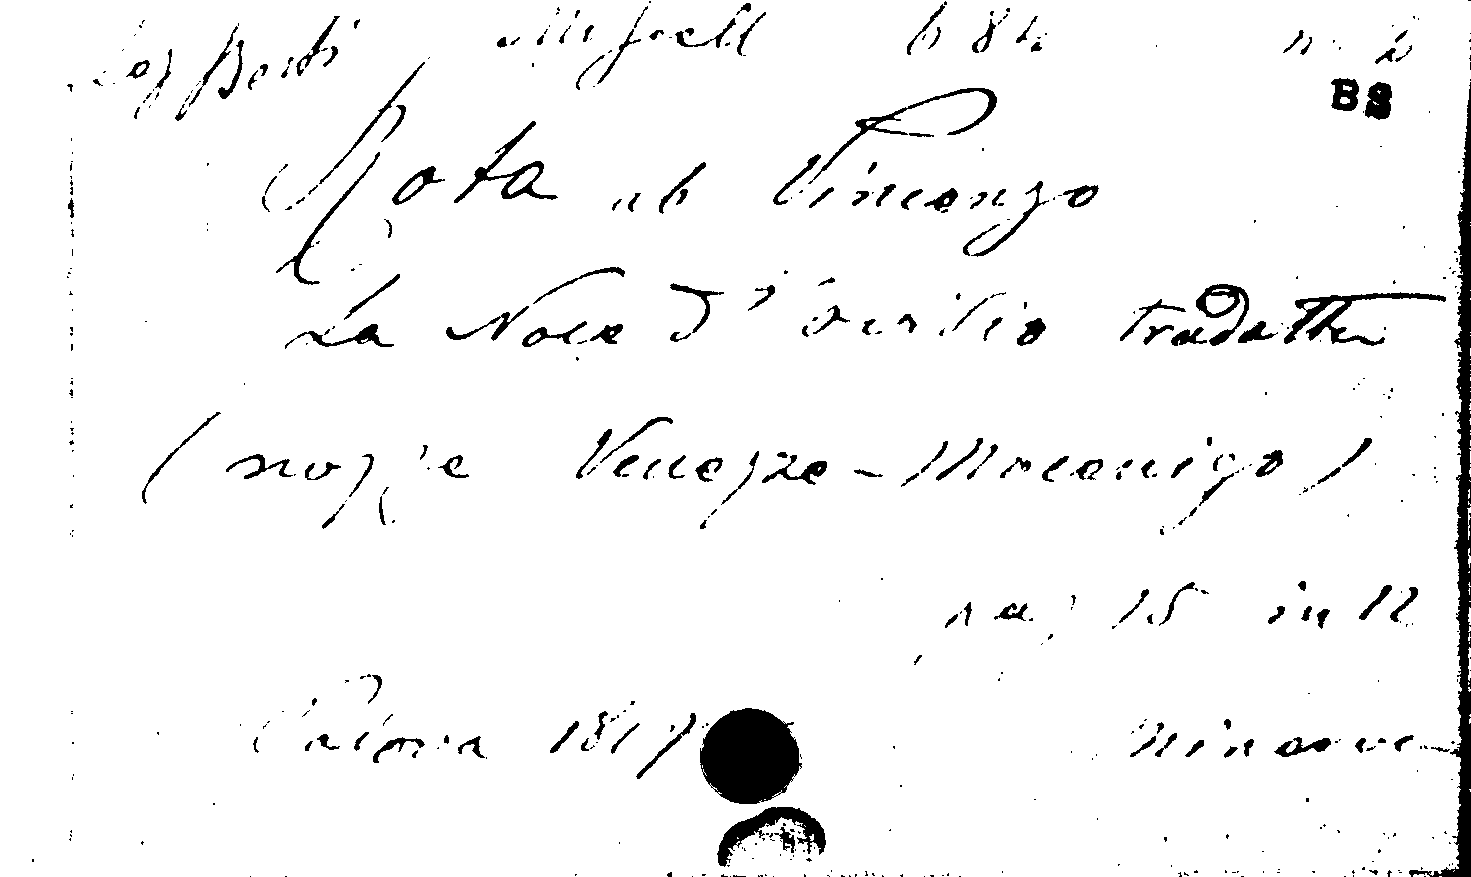 Leg Berti Miscell b 84 n. 2
BS
Rota ab Vincenzo
La Noce d'Ovidio tradotta
(nozze Venezze-Mocenigo)
pag 15 in 12
Padova 1817 Minerva